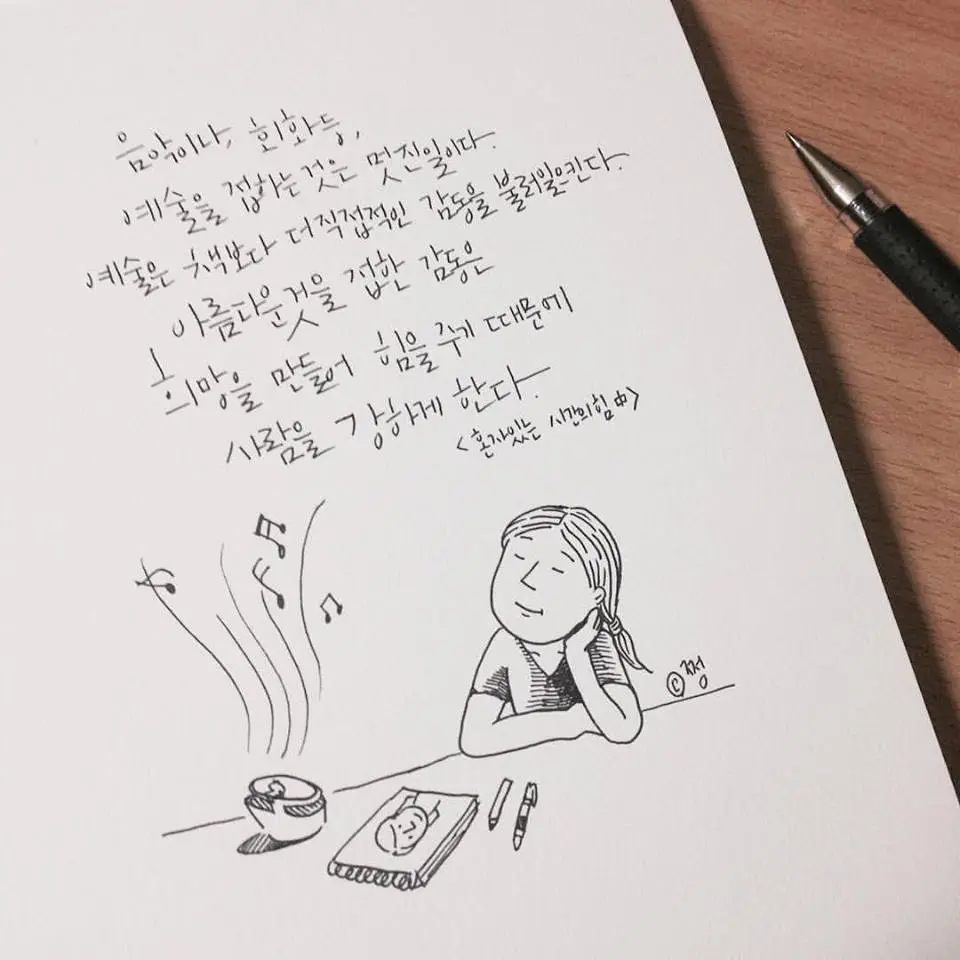 음악이나, 회화 등,
예술을 접하는 것은 멋진일이다.
예술은 책보다 더 직접적인 감동을 불러일으킨다.
아름다운것을 접한 감동은
희망을 만들어 힘을 주기 때문에
사람을 강하게 한다.
<혼자있는 시간의 힘 中>
©쩡